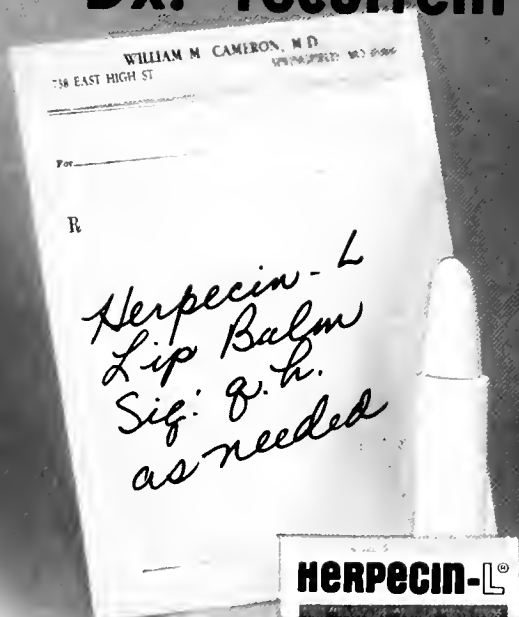 Dx: recurrent
WILLIAM M. CAMERON, M D
738 EAST HIGH ST SPRINGFIELD, MO
For
R
Herpecin-L
Lip Balm
Sig: q.h.
as needed
HERPECIN-L®